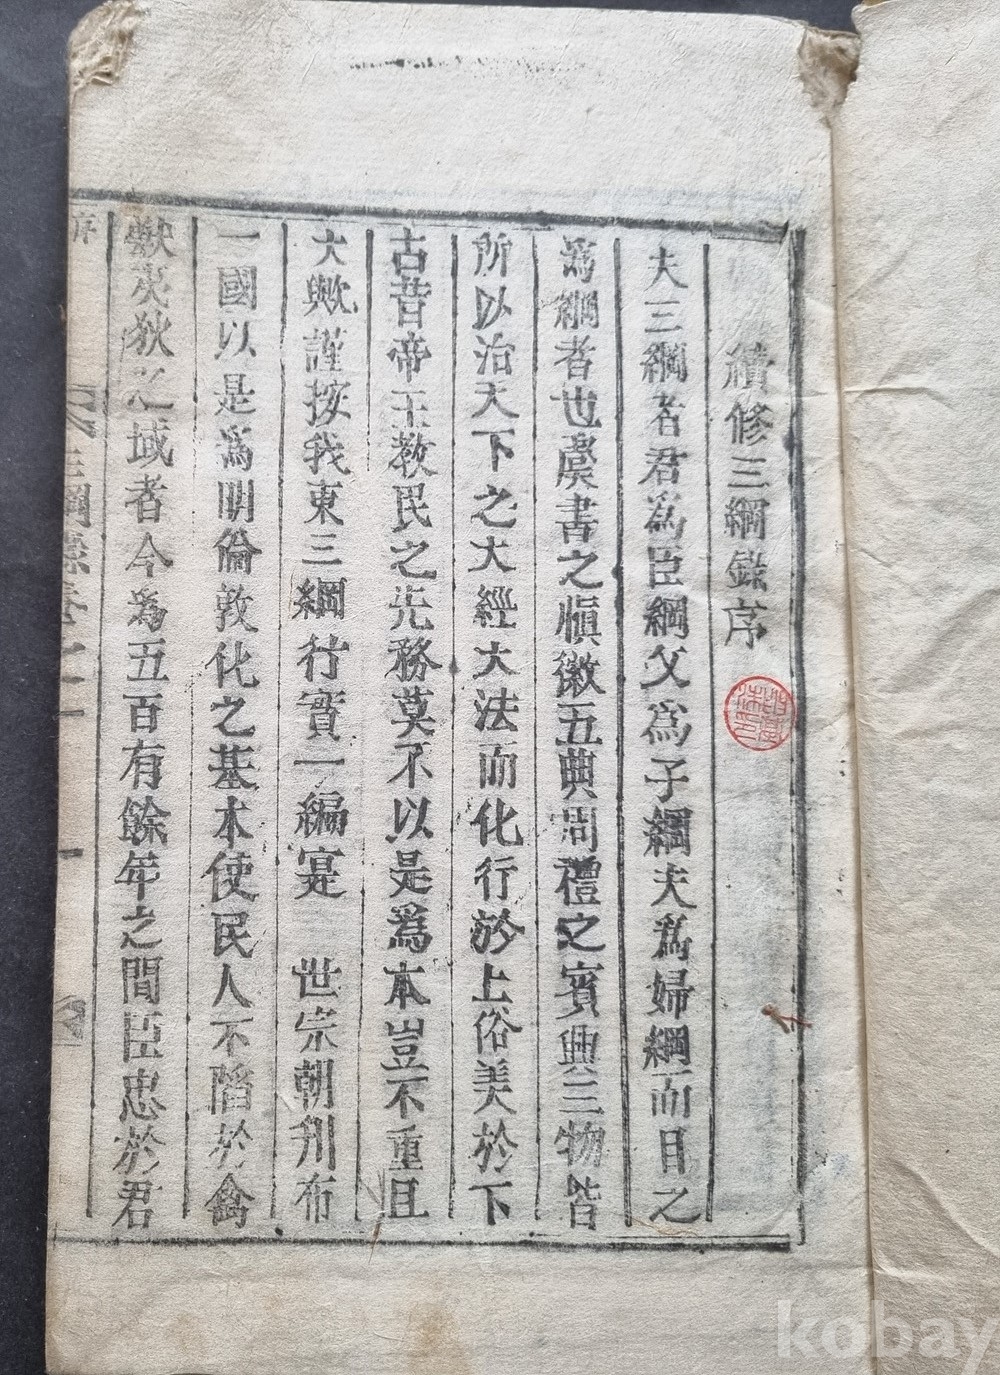 續修三綱錄序
夫三綱者君爲臣綱父爲子綱夫爲婦綱而目之
爲綱者也虞書之愼徽五典周禮之賓興三物皆
所以治天下之大經大法而化行於上俗美於下
古昔帝王敎民之先務莫不以是爲本豈不重且
大歟謹按我東三綱行實一編寔 世宗朝刋布
一國以是爲明倫敦化之基本使民人不陷於禽
獸夷狄之域者今爲五百有餘年之間臣忠於君
序
三綱錄卷之一
kobay